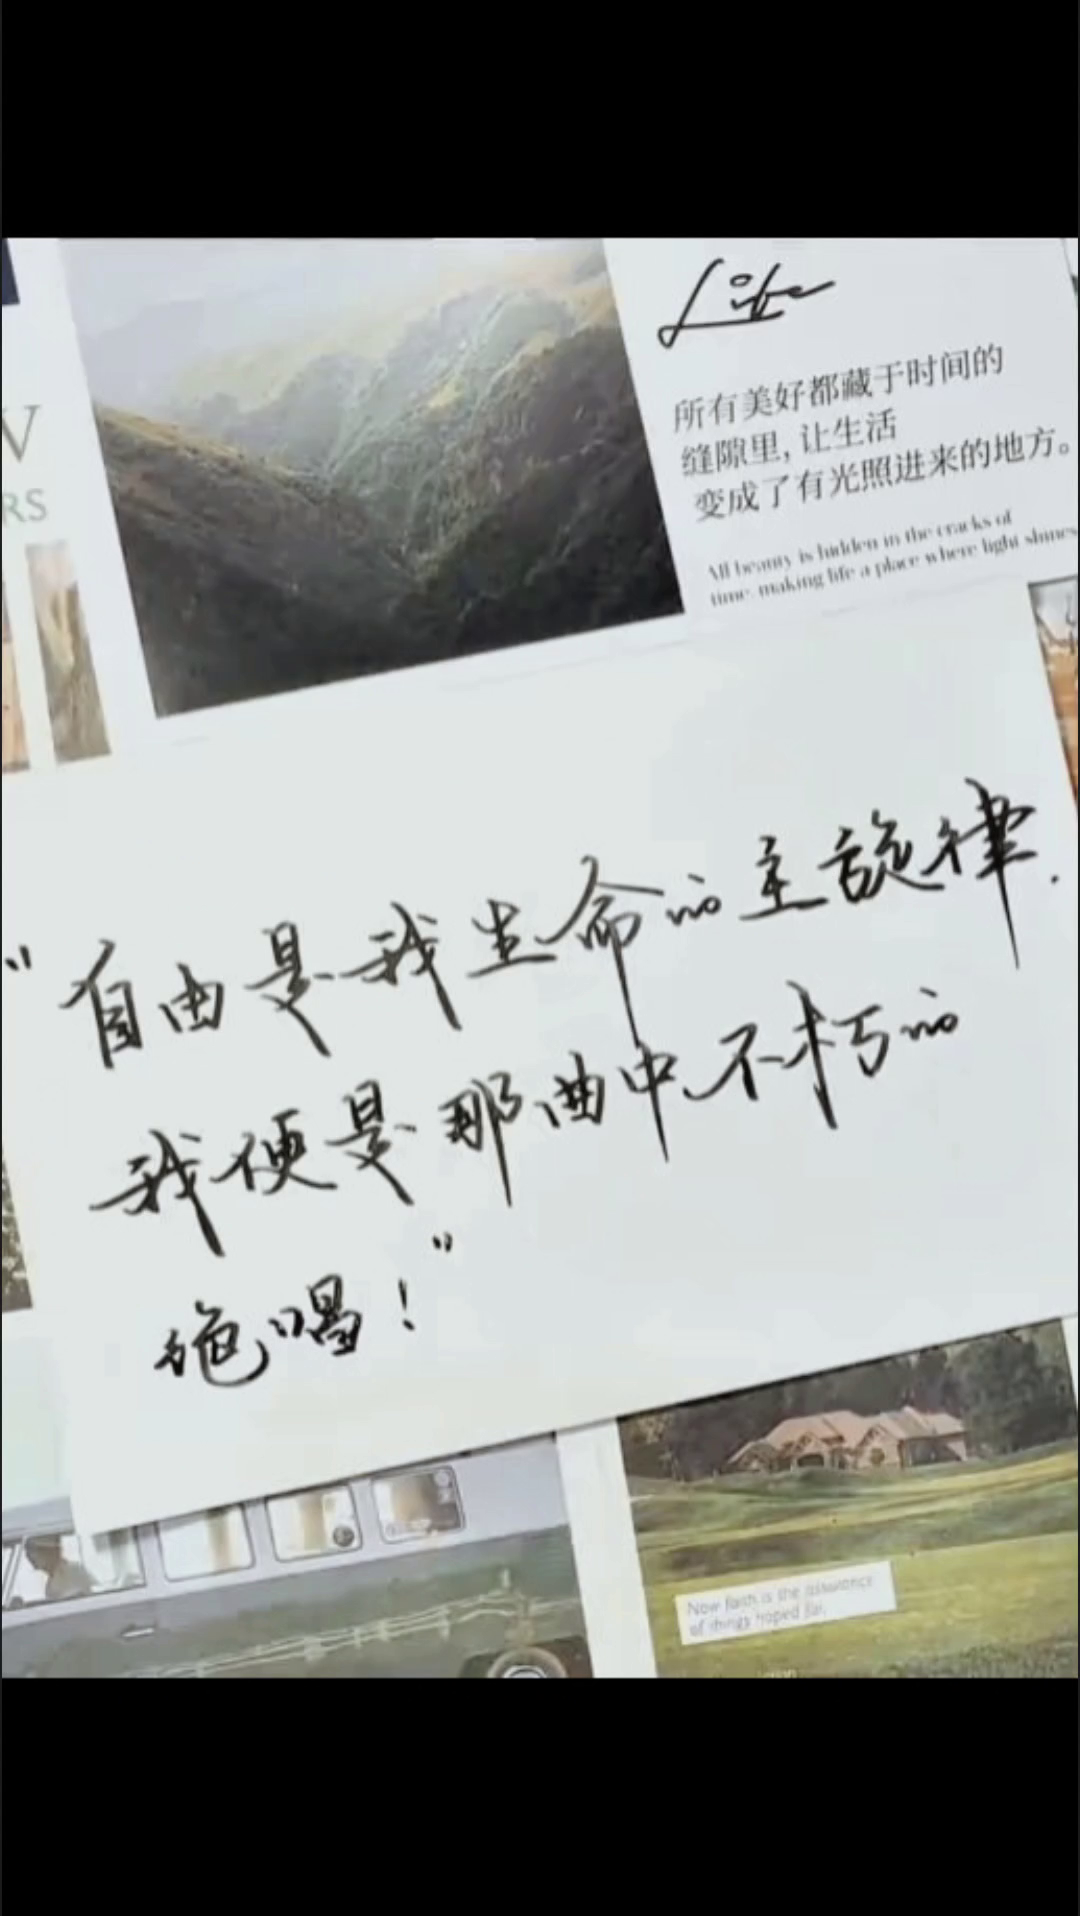 Life
所有美好都藏于时间的
缝隙里，让生活
变成了有光照进来的地方。
All beauty is hidden in the cracks of
time, making life a place where light shines
V
RS
“自由是我生命的主旋律.
我便是那曲中不朽的
绝唱！”
Now faith is the assurance
of things hoped for.